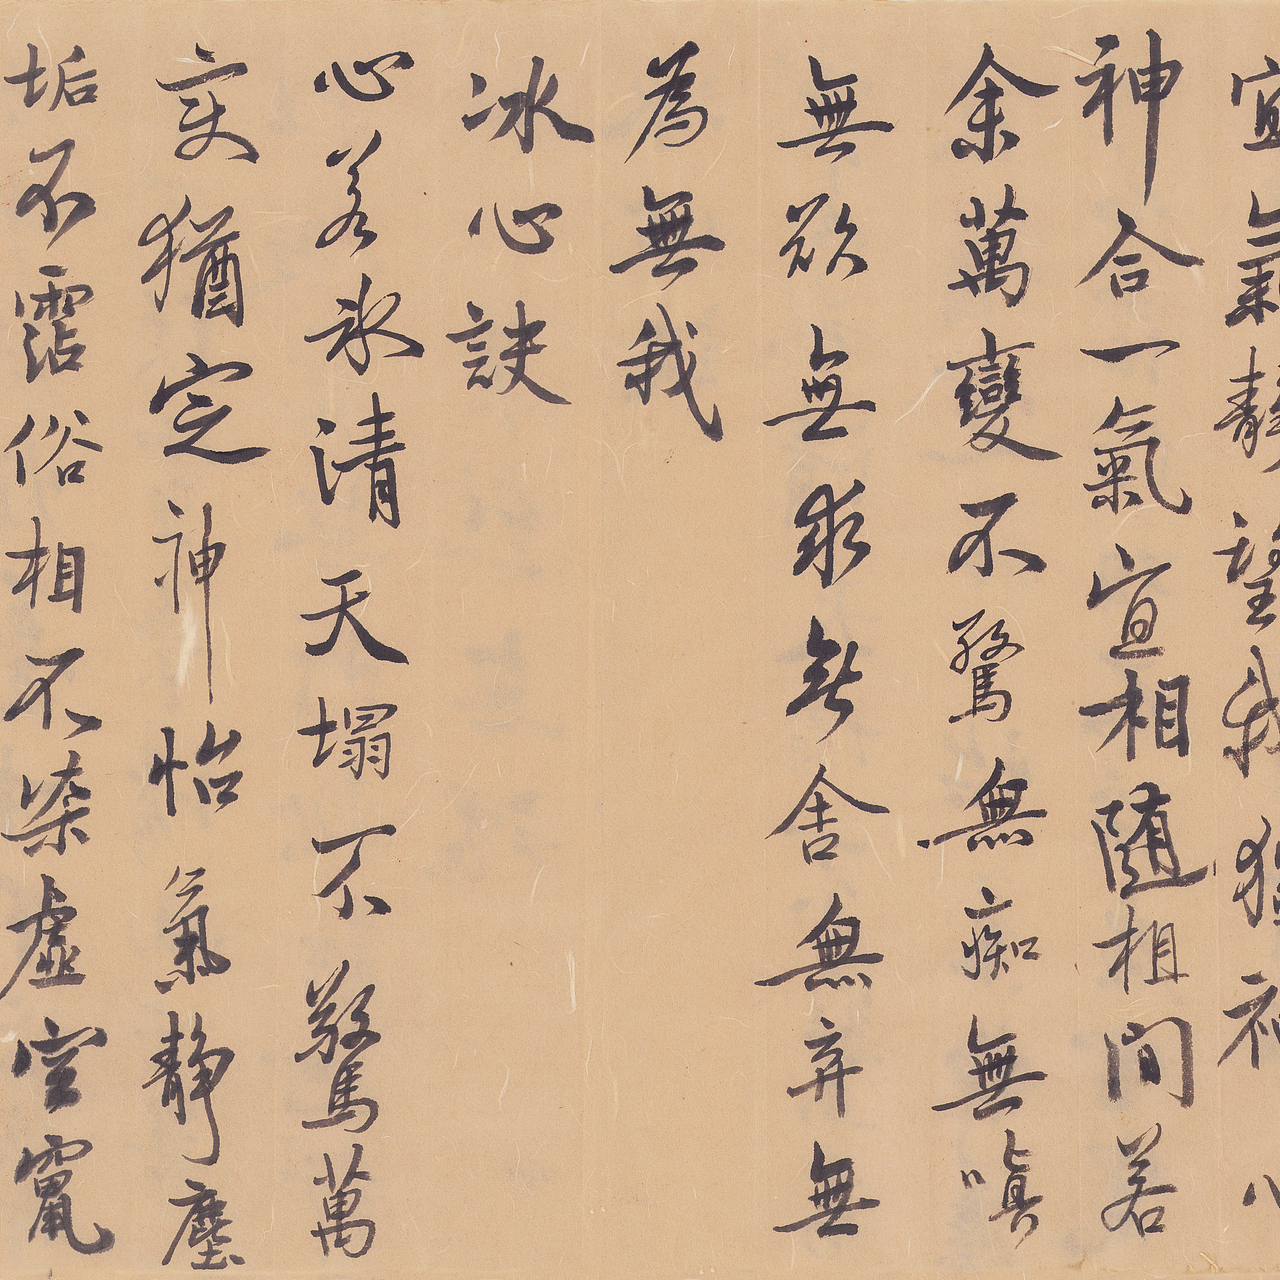 宜氣靜望我獨神心
神合一氣宜相隨相間若
余萬變不驚無痴無嗔
無欲無求無舍無弃無
為無我
冰心訣
心若冰清天塌不驚萬
变猶定神怡氣靜塵
垢不霑俗相不染虛空甯